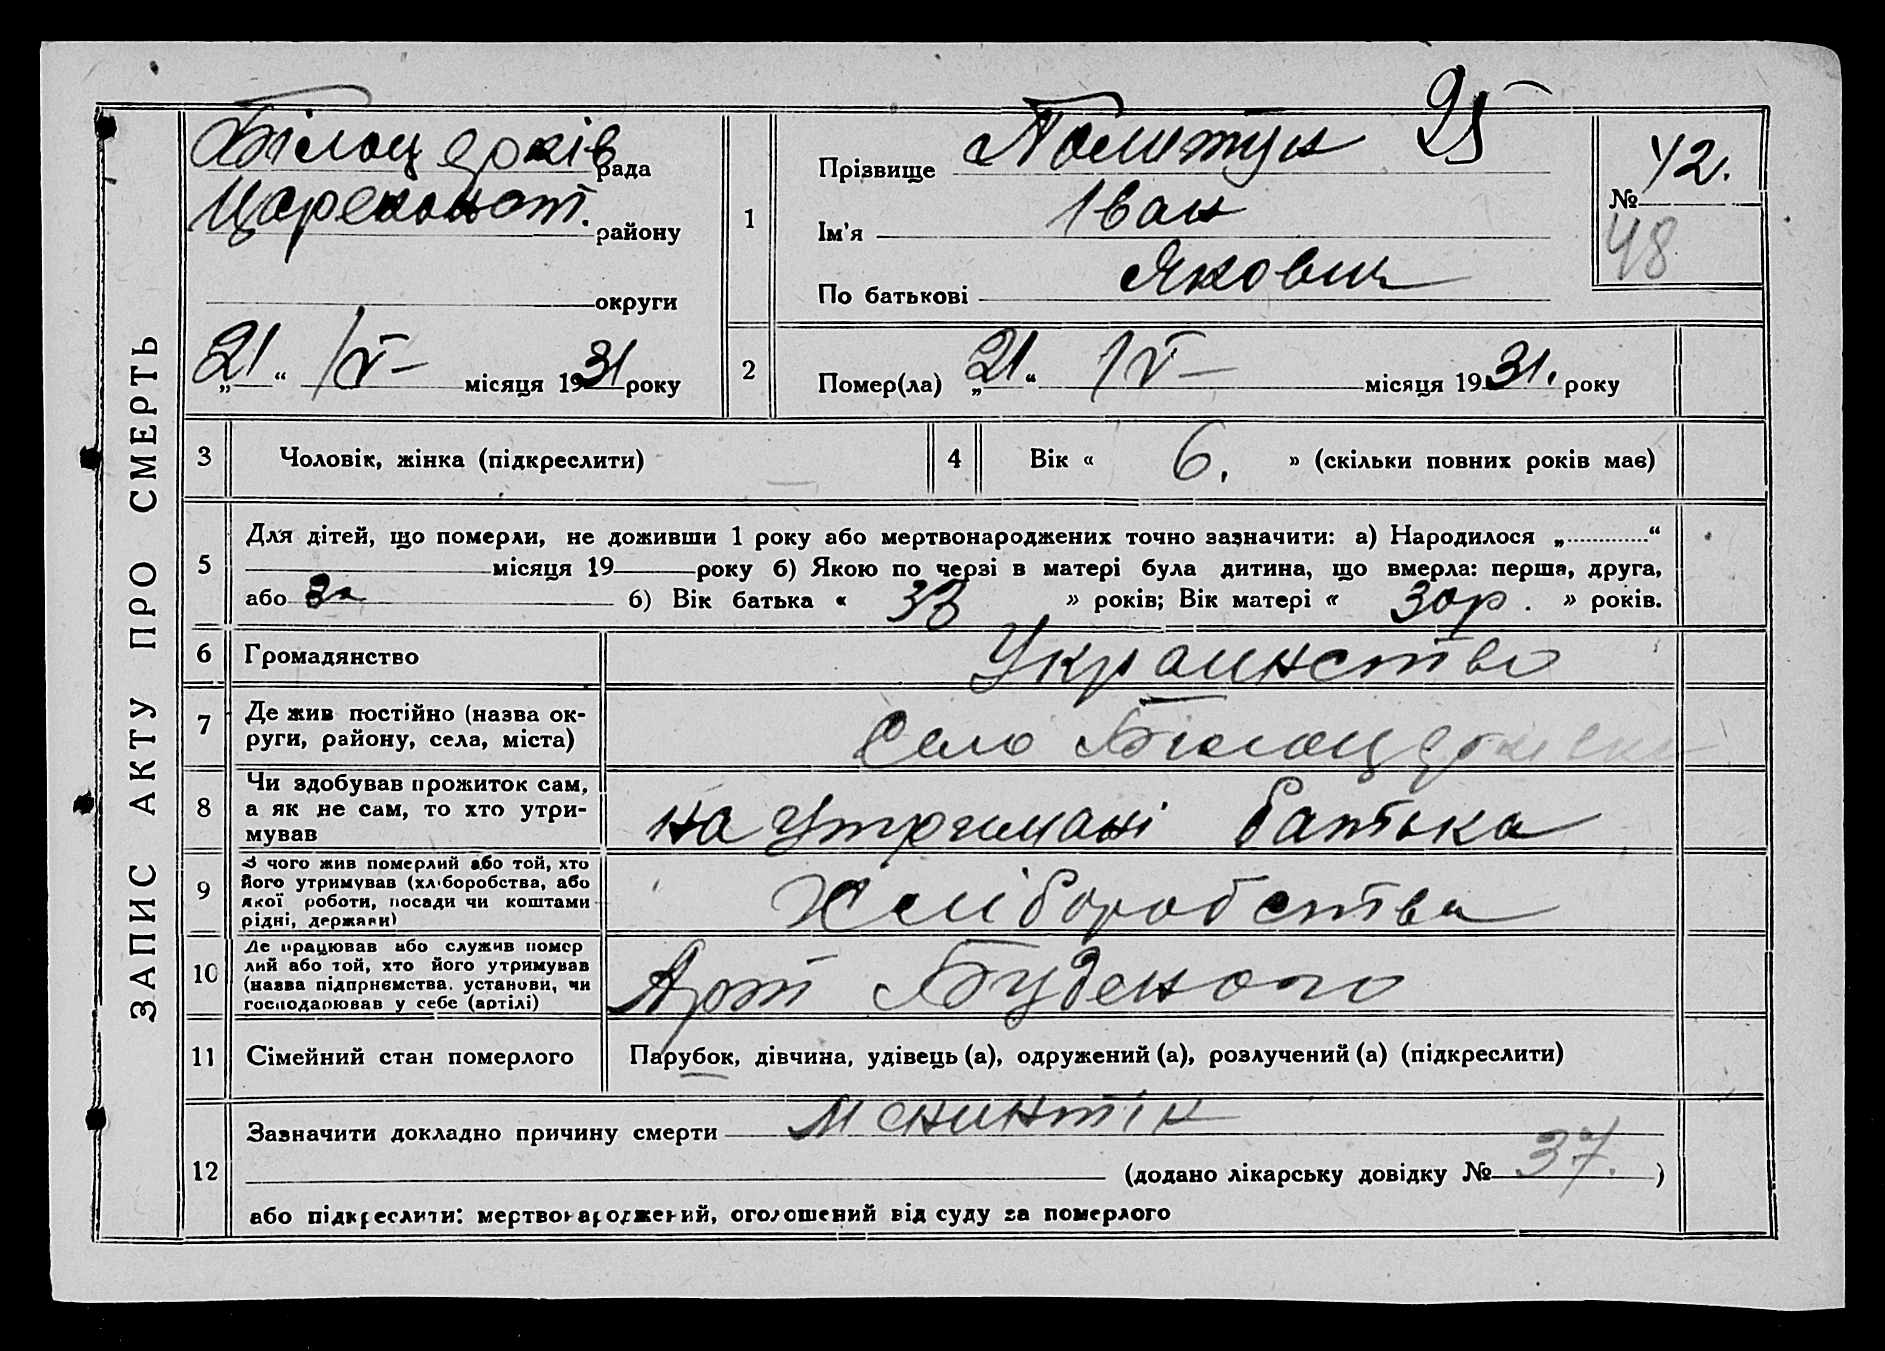 ЗАПИС АКТУ ПРО СМЕРТЬ
рада
району
округи
„21“ IV місяця 1931 року
25
1 Прізвище
Ім'я Іван
По батькові Якович
№ 42.
48
2 Помер(ла) „21“ IV місяця 1931. року
3 Чоловік, жінка (підкреслити)
4 Вік « 6. » (скільки повних років має)
5 Для дітей, що померли, не доживши 1 року або мертвонароджених точно зазначити: а) Народилося „ “
місяця 19 року б) Якою по черзі в матері була дитина, що вмерла: перша, друга,
або 3а б) Вік батька « 33 » років; Вік матері « 30 р. » років.
6 Громадянство Украинство
7 Де жив постійно (назва ок-
руги, району, села, міста) Село
8 Чи здобував прожиток сам,
а як не сам, то хто утри-
мував на утримані батька
9 З чого жив померлий або той, хто
його утримував (хліборобства, або
якої роботи, посади чи коштами
рідні, держави) Хліборобства
10 Де працював або служив помер
лий або той, хто його утримував
(назва підприємства, установи, чи
господарював у себе (артілі) Арт Буденого
11 Сімейний стан померлого Парубок, дівчина, удівець (а), одружений (а), розлучений (а) (підкреслити)
12 Зазначити докладно причину смерти
(додано лікарську довідку № 37. )
або підкреслити: мертвонароджений, оголошений від суду за померлого